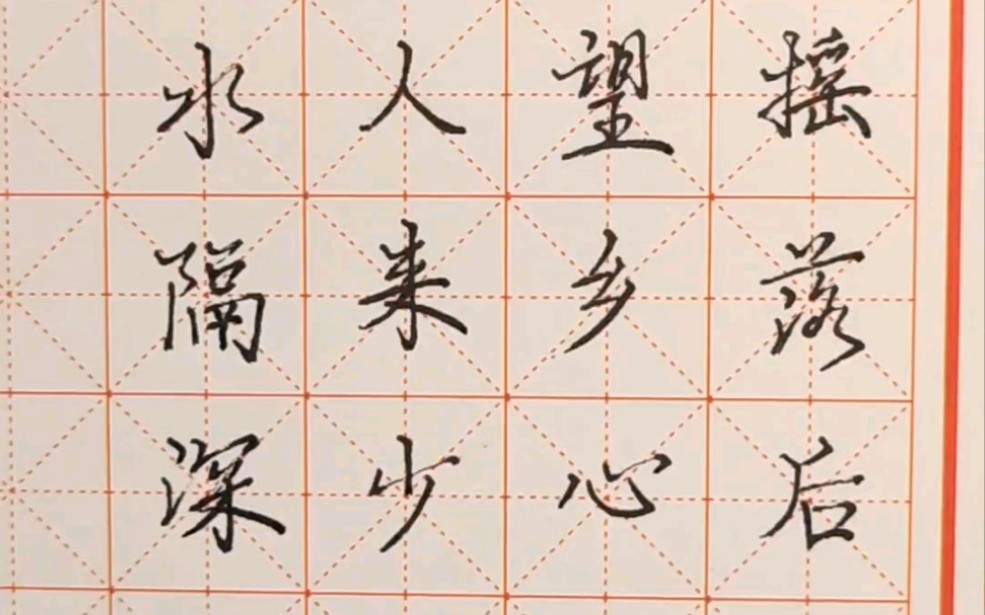 摇落后
望乡心
人来少
水隔深